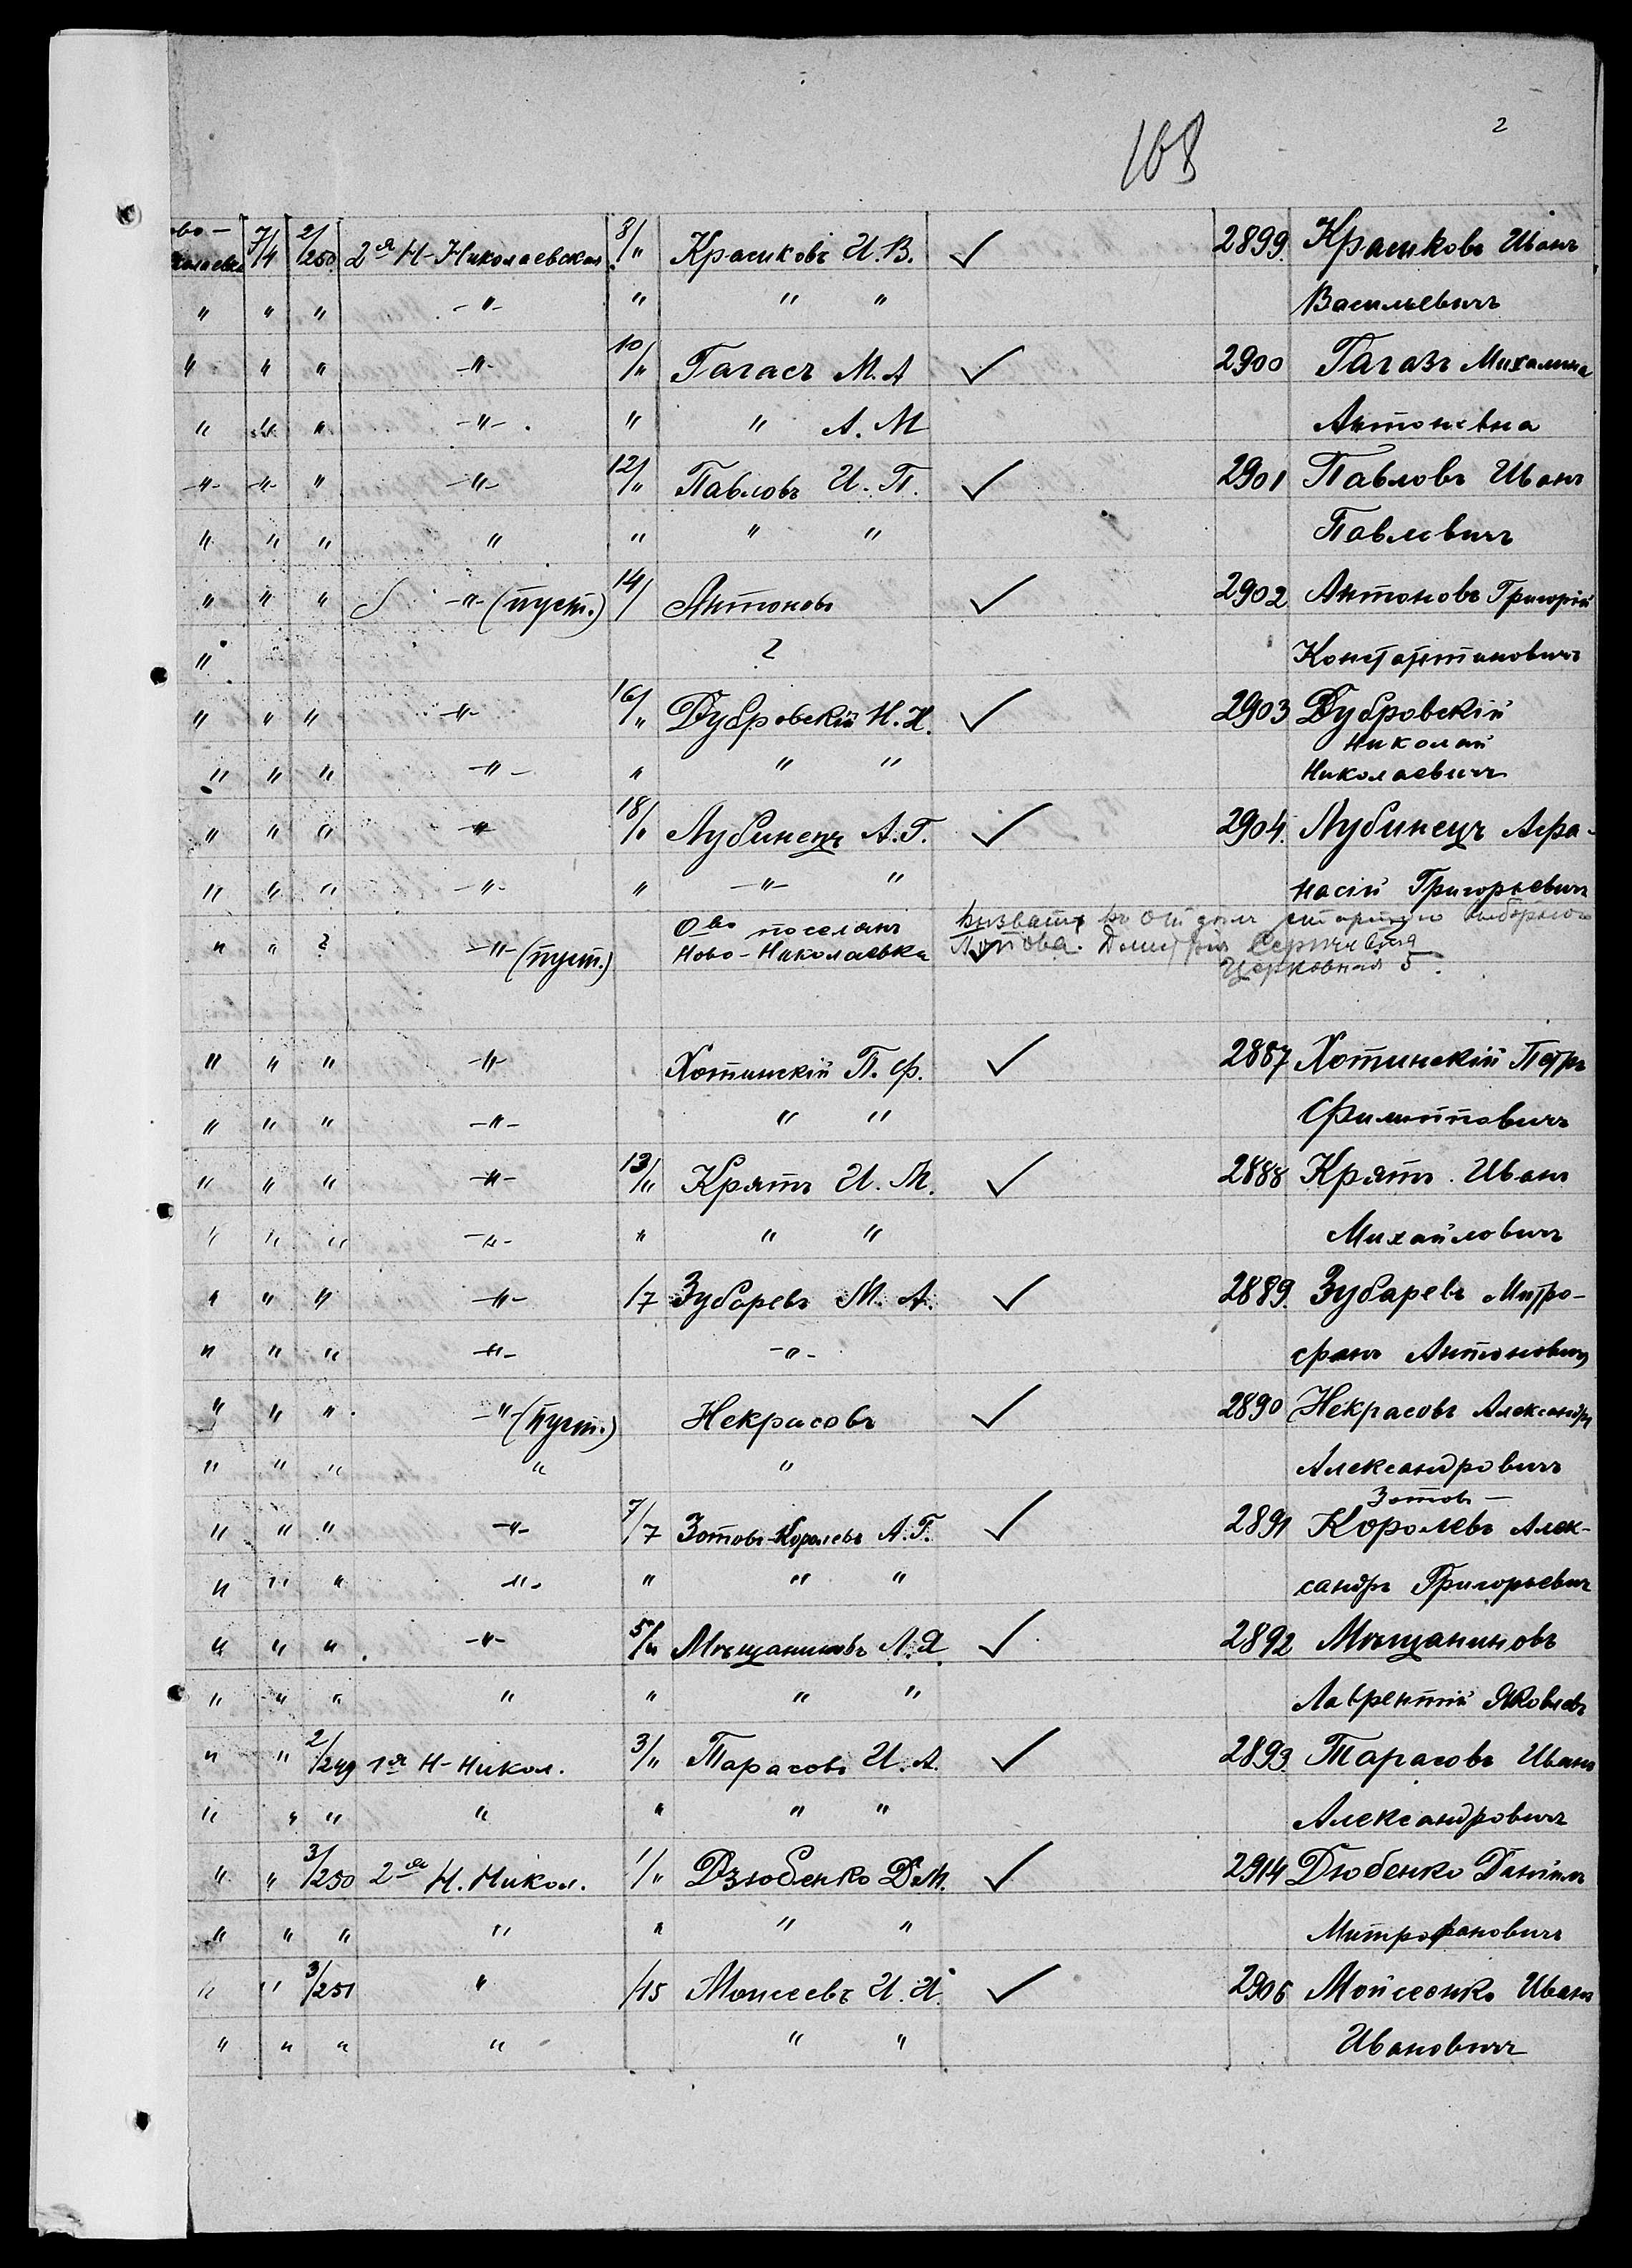 2
108
ово- 7/4 2/250. 2я Н-Николаевская 8/" Красиковъ И.В. ✓ 2899. Красиковъ Иванъ
колаевка
" " " -"- " " " Васильевичъ
" " " -"- 10/" Гагасъ М.А ✓ 2900 Гагазъ Михалина
" " " -"- " " А.М Антоновна
-"- -"- " -"- 12/" Павловъ И.П. ✓ 2901 Павловъ Иванъ
" " " " " " " Павловичъ
" " " -"- (пуст.) 14/ Антоновъ ✓ 2902 Антоновъ Григорій
" ? Константиновичъ
" " " -"- 16/" Дубровскій Н.Н. ✓ 2903 Дубровскій
Николай
" " " -"- " " " Николаевичъ
" " " -"- 18/" Лубинецъ А.Г. ✓ 2904. Лубинецъ Афа-
" " " -"- " -"- " насій Григорьевичъ
" " ? -"- (пуст.) О-во поселянъ Ново-Николаевка ✓
Вызвать Попова. Церковная 5.
" " " -"- Хотинскій П.Ф. ✓ 2887 Хотинскій Петръ
" " " -"- " " Филипповичъ
" " " -"- 13/" Крятъ И.М. ✓ 2888 Крятъ Иванъ
" " " -"- " " " Михайловичъ
" " " -"- /7 Зубаревъ М.А. ✓ 2889. Зубаревъ Митро-
" " " -"- -"- фанъ Антоновичъ
" " " -"- (пуст.) Некрасовъ ✓ 2890 Некрасовъ Александръ
" " " " " Александровичъ
Зотовъ-
" " " -"- 7/7 Зотовъ-Королевъ А.Г. ✓ 2891 Королевъ Алек-
" " " -"- " " " сандръ Григорьевичъ
" " " -"- 5/" Мѣщаниновъ Л.Я. ✓ 2892 Мѣщаниновъ
" " " " " " " Лаврентій Яковлевъ
" " 2/249 1я Н-Никол. 3/" Тарасовъ И.А. ✓ 2893. Тарасовъ Иванъ
" " " " " " " Александровичъ
" " 3/250 2я Н.Никол. 1/" Дзюбенко Д.М. ✓ 2914 Дюбенко Даніилъ
" " " " " " " Митрофановичъ
" " 3/251 " /15 Моисеевъ И.И. ✓ 2906 Мойсеенко Иванъ
" " " " " " Ивановичъ